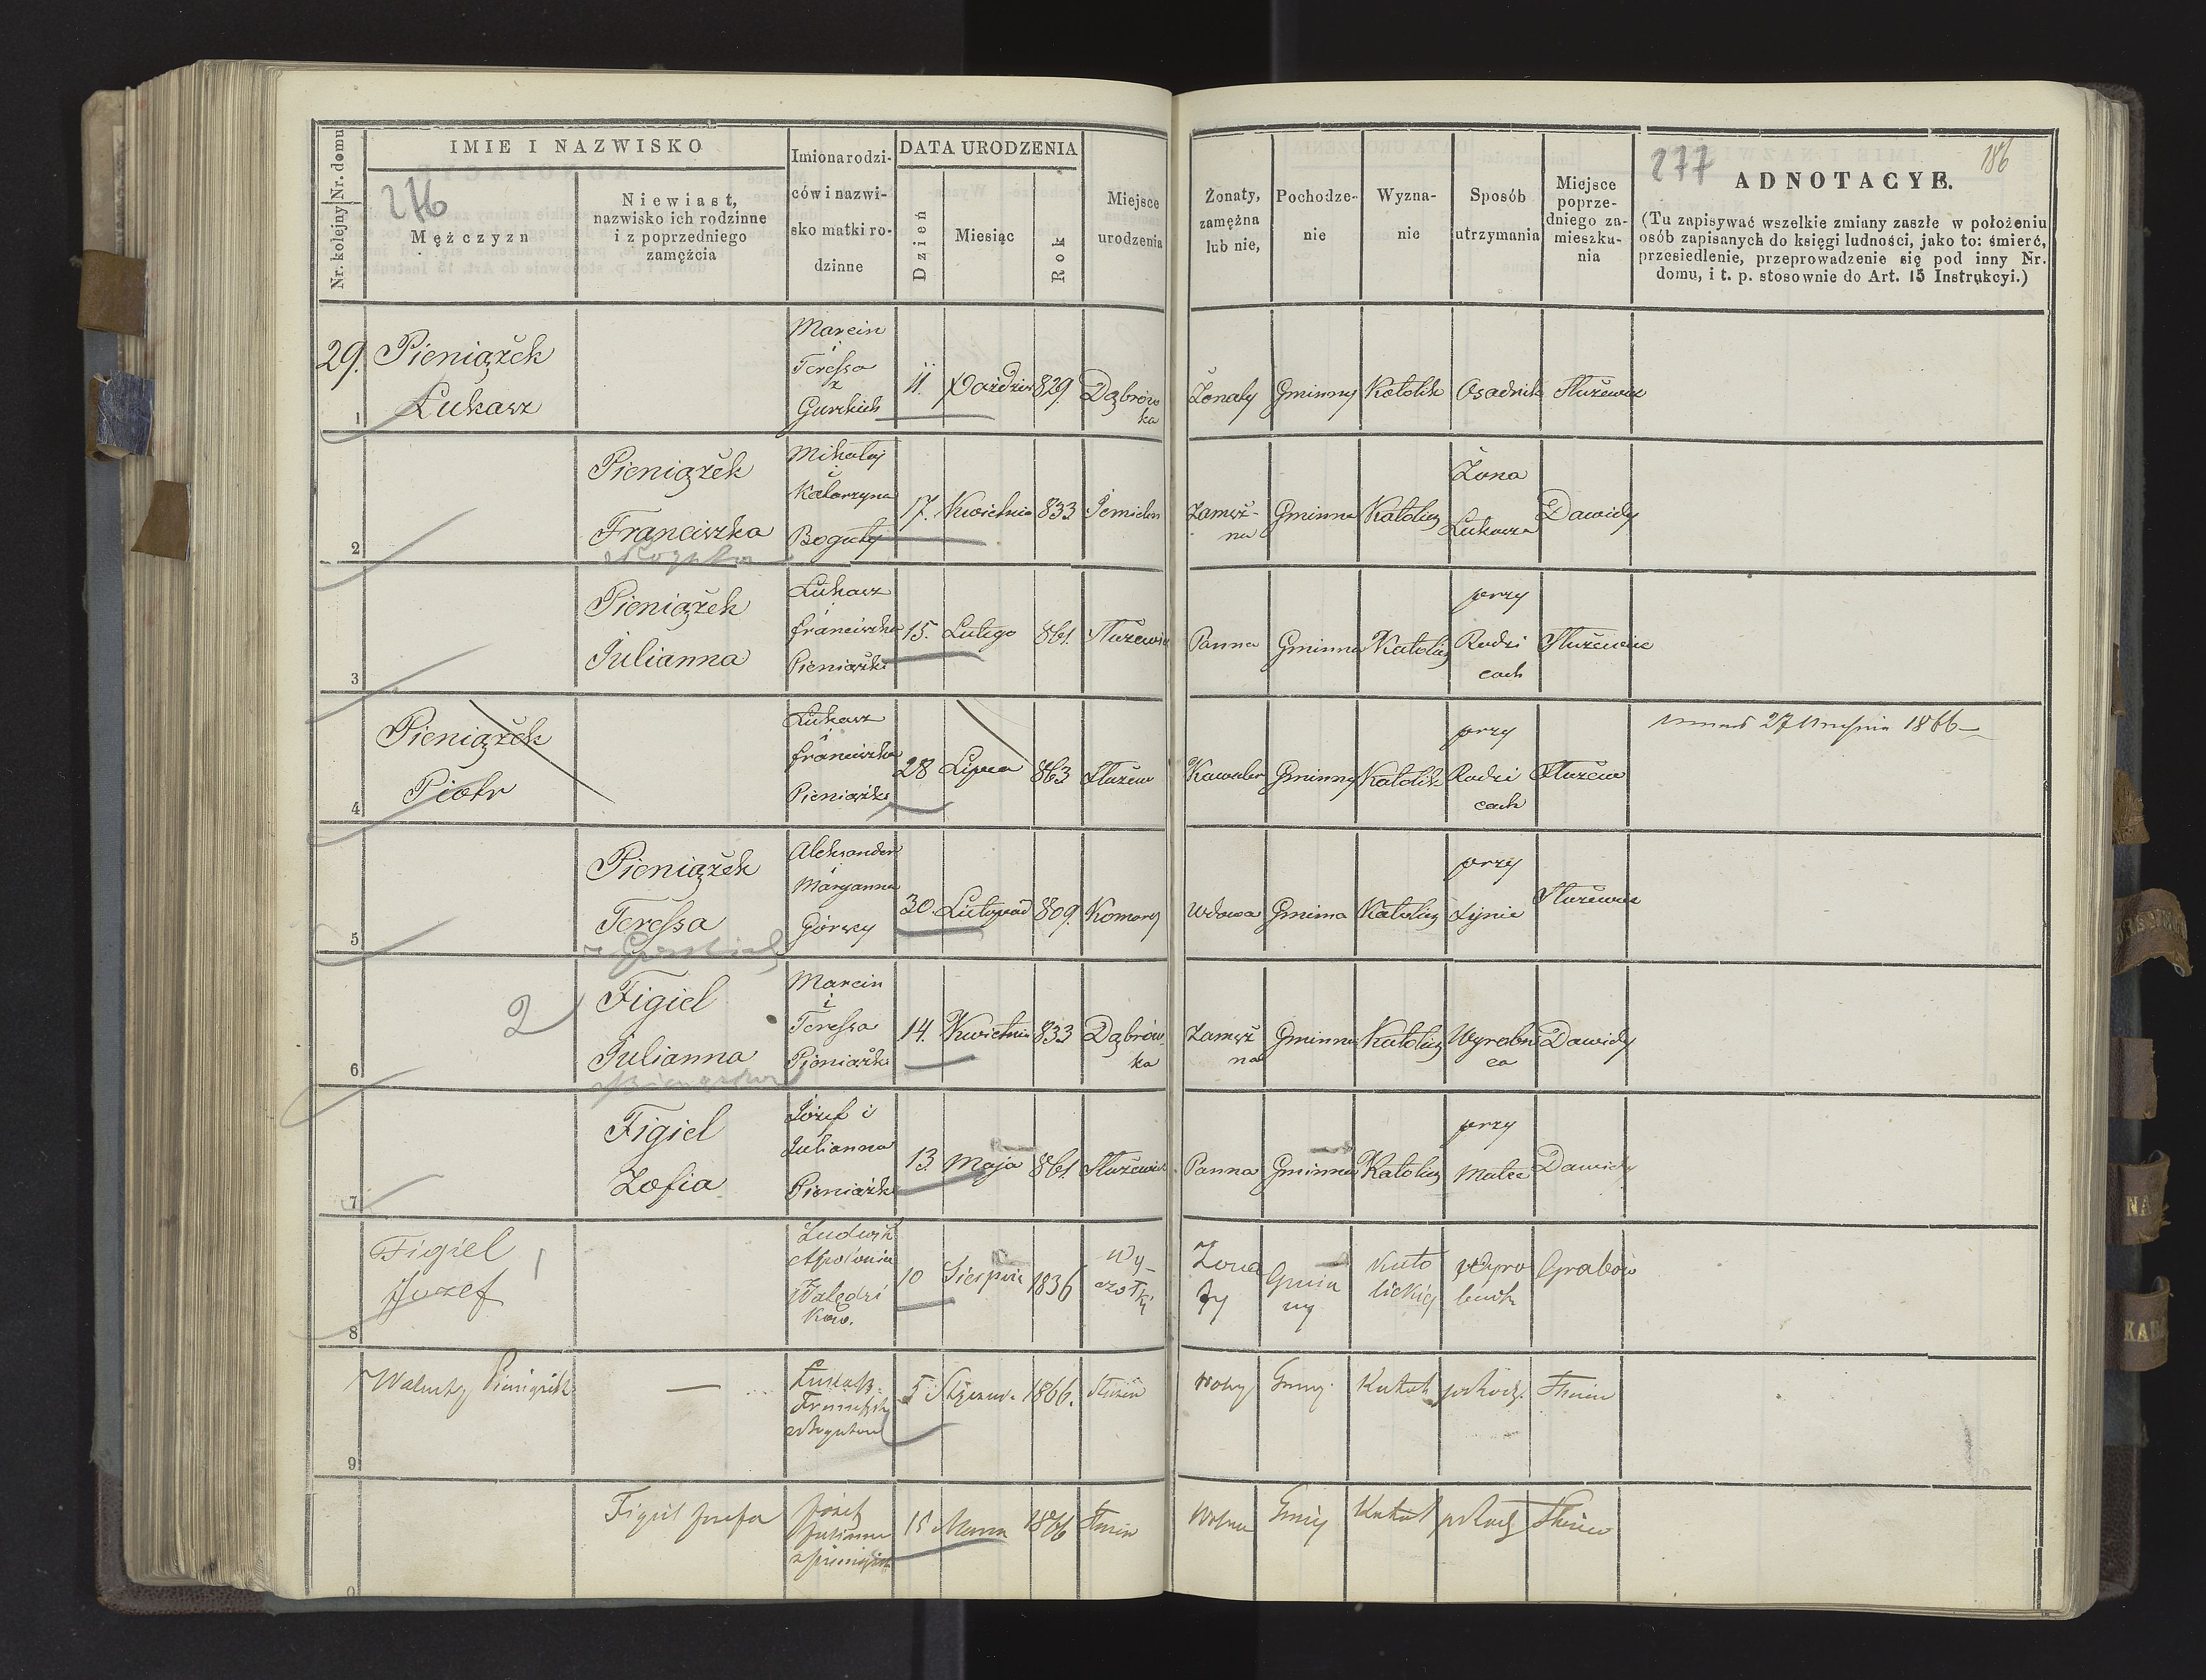 276
277
186
Nr. kolejny Nr. domu
IMIE I NAZWISKO
Mężczyzn
Niewiast,
nazwisko ich rodzinne
i z poprzedniego
zamężcia
Imiona rodzi-
ców i nazwi-
sko matki ro-
dzinne
DATA URODZENIA
Dzień
Miesiąc
Rok
Miejsce
urodzenia
Żonaty,
zamężna
lub nie,
Pochodze-
nie
Wyzna-
nie
Sposób
utrzymania
Miejsce
poprze-
dniego za-
mieszku-
nia
ADNOTACYE.
(Tu zapisywać wszelkie zmiany zaszłe w położeniu
osób zapisanych do księgi ludności, jako to: śmierć,
przesiedlenie, przeprowadzenie się pod inny Nr.
domu, i t. p. stosownie do Art. 15 Instrukcyi.)
29.
1
Pieniążek
Łukasz
Marcin
i
Teressa
z
Gurskich
11. Paździer 829. Dąbrów
ka
Żonaty Gminny Katolik Osadnik Służewiec
2
Pieniążek
Franciszka
Mikołaj
i
Katarzyna
Boguty
17. Kwietnia 833
Zamęż-
na
Gminna Katolicz
Żona
Łukasza
Dawidy
3
Pieniążek
Julianna
Łukasz
i
franciszka
Pieniążki
15. Lutego 861. Służewiec
Panna Gminna Katolicz
przy
Rodzi
cach
Służewiec
4
Pieniążek
Piotr
Łukasz
i
franciszka
Pieniążki
28 Lipca 863 Służew
Kawaler Gminny Katolik
przy
Rodzi
cach
Służew
27 Września 1866
5
Pieniążek
Teressa
Aleksander
i
Maryanna
Górscy
30. Listopad 809. Komory
Wdowa Gminna Katolicz
przy
Synie
Służewiec
6
2
Figiel
Julianna
Marcin
i
Teressa
Pieniążki
14. Kwietnia 833 Dąbrów
ka
Zamęż
na
Gminna Katolicz
Wyrobni
ca
Dawidy
7
Figiel
Zofia
Józef i
Julianna
Pieniążki
13. Maja 861. Służewiec
Panna Gminna Katolicz
przy
Matce
Dawidy
8
Figiel
Jozef
1
Ludwik
Apolonia
10 Sierpnia 1836
Wy-
czołki
Żona
ty
Gmin
ny
Kato
lickiej
Wyro
bnik
Grabów
9
Walenty Pieniążek
—
5 1866. Służew
Wolny
0
Figiel Józefa
Józef
Julianna
z Pieniążk
15 Marca 1866 Służew
Wolna
NA